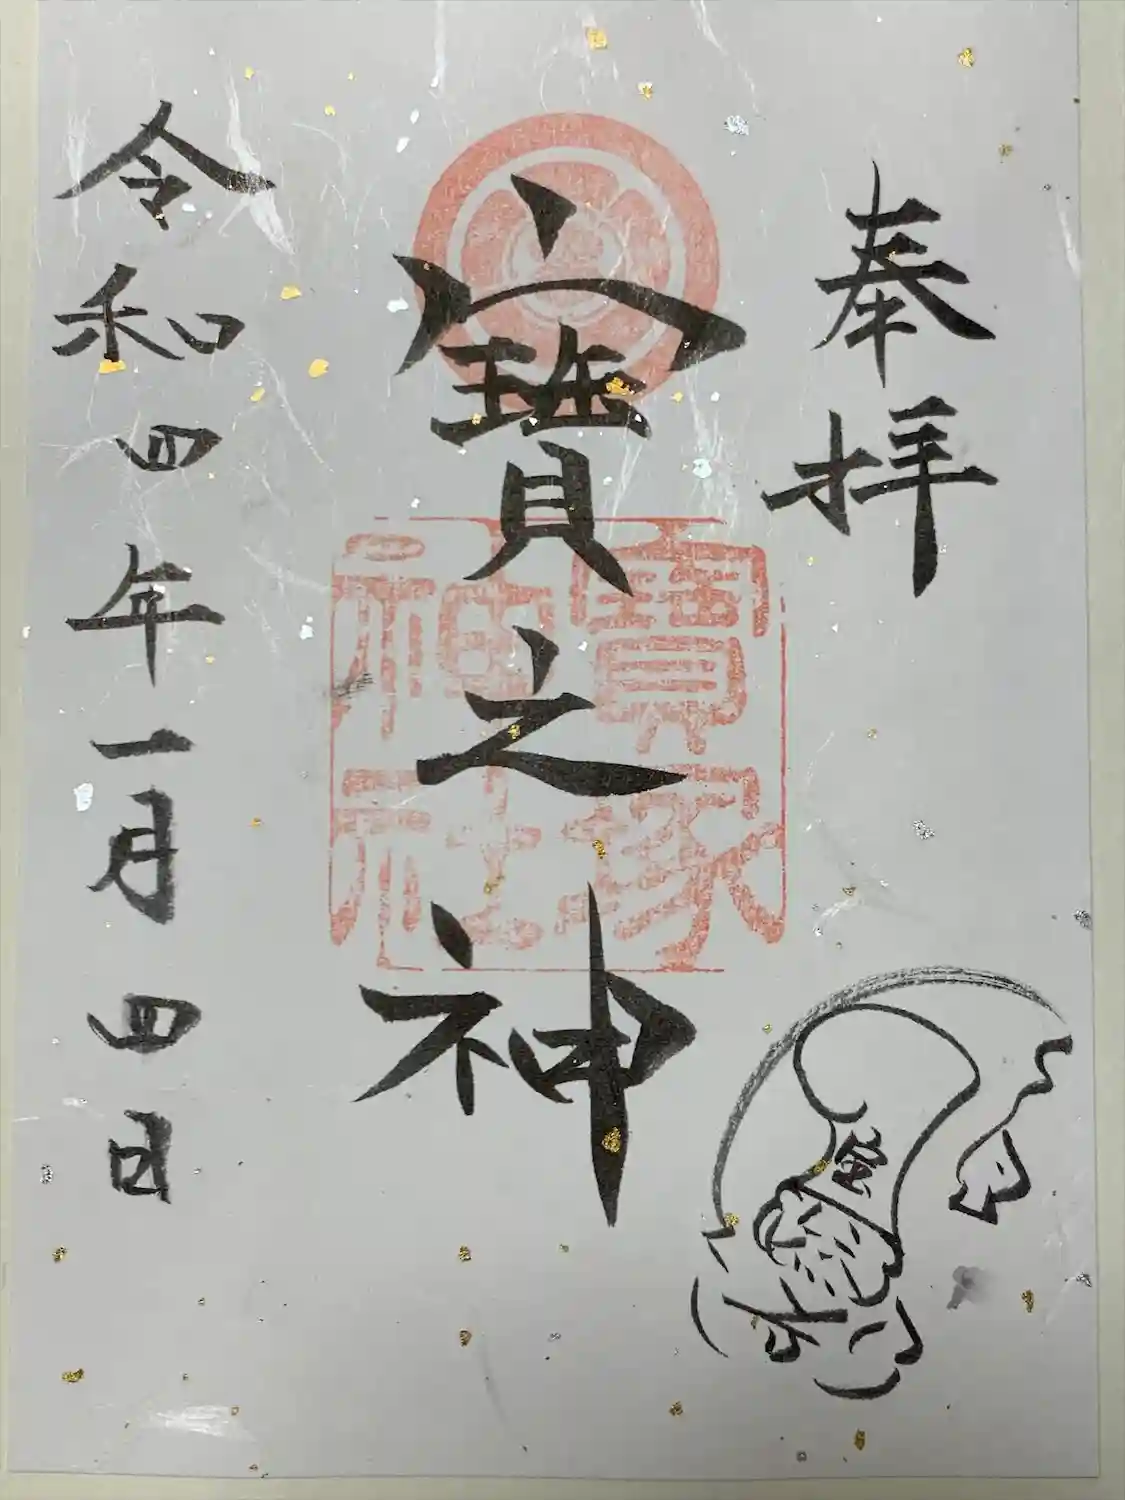 奉拝
寳之神
寳塚神社
令和四年一月四日